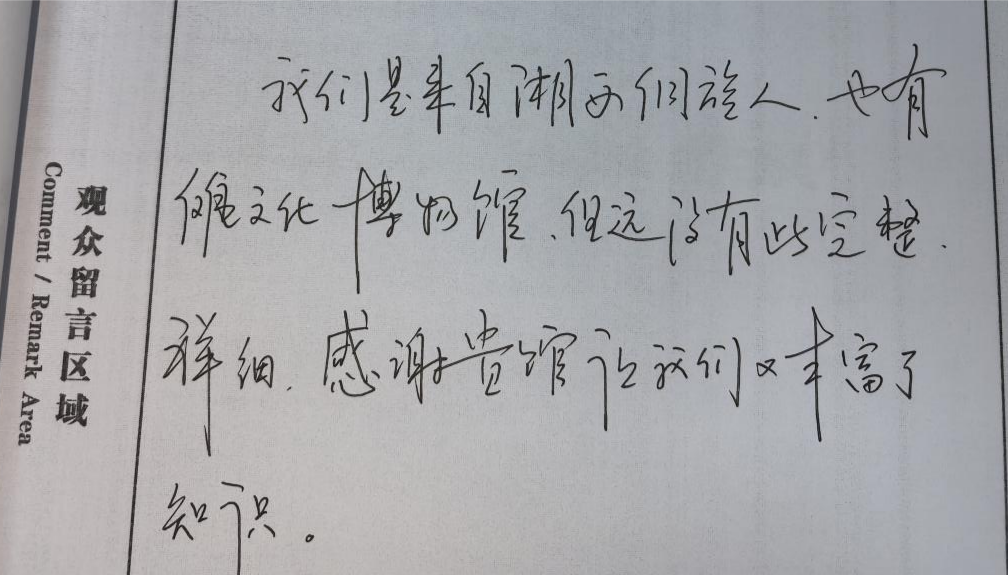 我们是来自湘西侗族人，也有
傩文化博物馆，但远没有此完整，
详细，感谢贵馆让我们又丰富了
知识。
观众留言区域
Comment / Remark Area